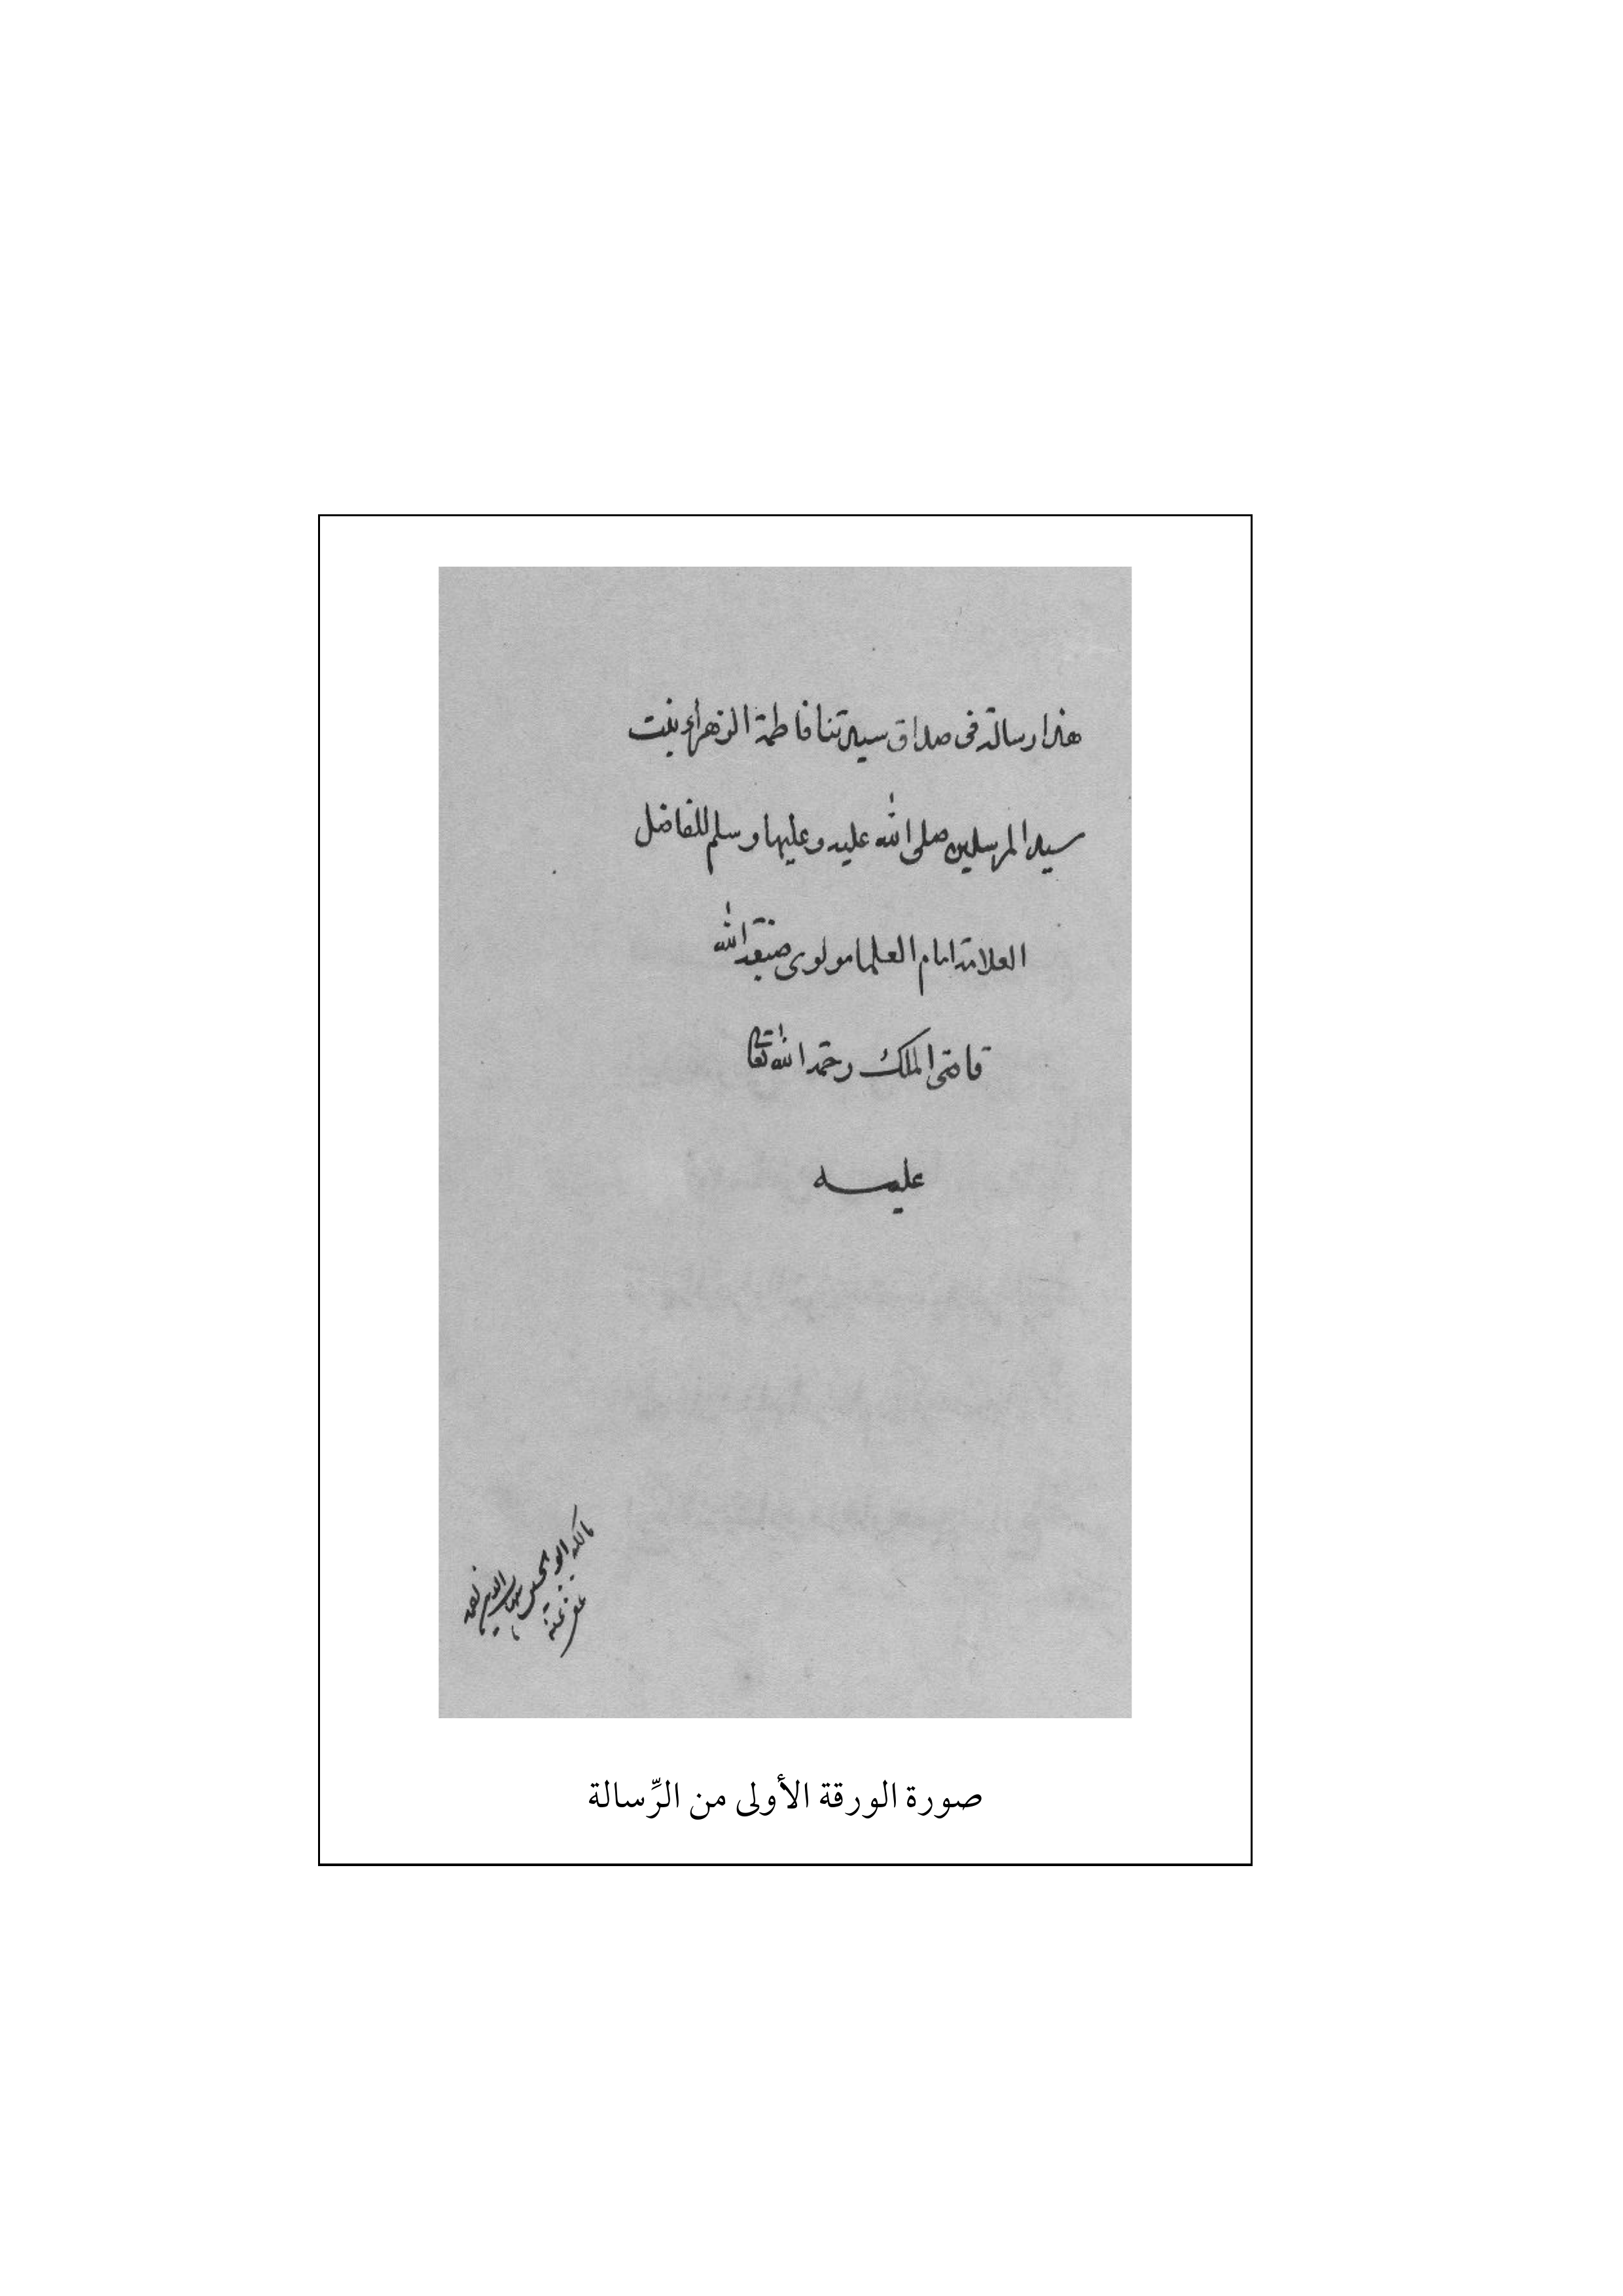 هذا رسالة فى صداق سيدتنا فاطمة الزهراء بنت
سيد المرسلين صلى الله عليه وعليها وسلم للفاضل
العلامة امام العلما مولوى صبغة الله
قاضى الملك رحمة الله تعالى
عليه
مالكه ابو
عفى عنه
صورة الورقة الأولى من الرِّسالة